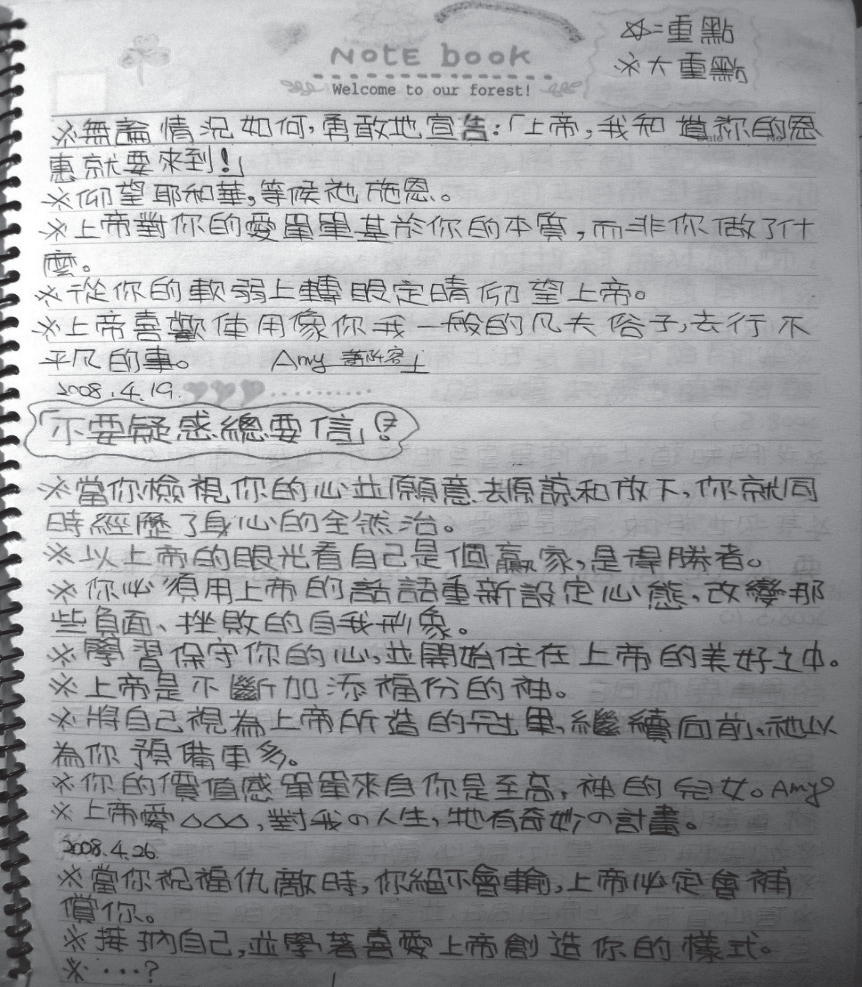 ☆=重點
※大重點
NOTE book
Welcome to our forest!
※無論情況如何,勇敢地宣告:「上帝,我知道祢的恩
惠就要來到!」
※仰望耶和華,等候祂施恩。
※上帝對你的愛單單基於你的本質,而非你做了什
麼。
※從你的軟弱上轉眼定睛仰望上帝。
※上帝喜歡使用像你我一般的凡夫俗子,去行不
平凡的事。 Amy
2008.4.19.
「不要疑惑總要信」
※當你檢視你的心並願意去原諒和放下,你就同
時經歷了身心的全然治。
※以上帝的眼光看自己是個贏家,是得勝者。
※你必須用上帝的話語重新設定心態、改變那
些負面、挫敗的自我形象。
※學習保守你的心,並開始住在上帝的美好之中。
※上帝是不斷加添福份的神。
※將自己視為上帝所造的,繼續向前、祂以
為你預備更多。
※你的價值感單單來自你是至高,神的兒女。Amy
※上帝愛△△△,對我の人生,牠有奇妙の計畫。
2008.4.26.
※當你祝福仇敵時,你絕不會輸,上帝必定會補
償你。
※接納自己,並學著喜愛上帝創造你的樣式。
※‧‧‧?